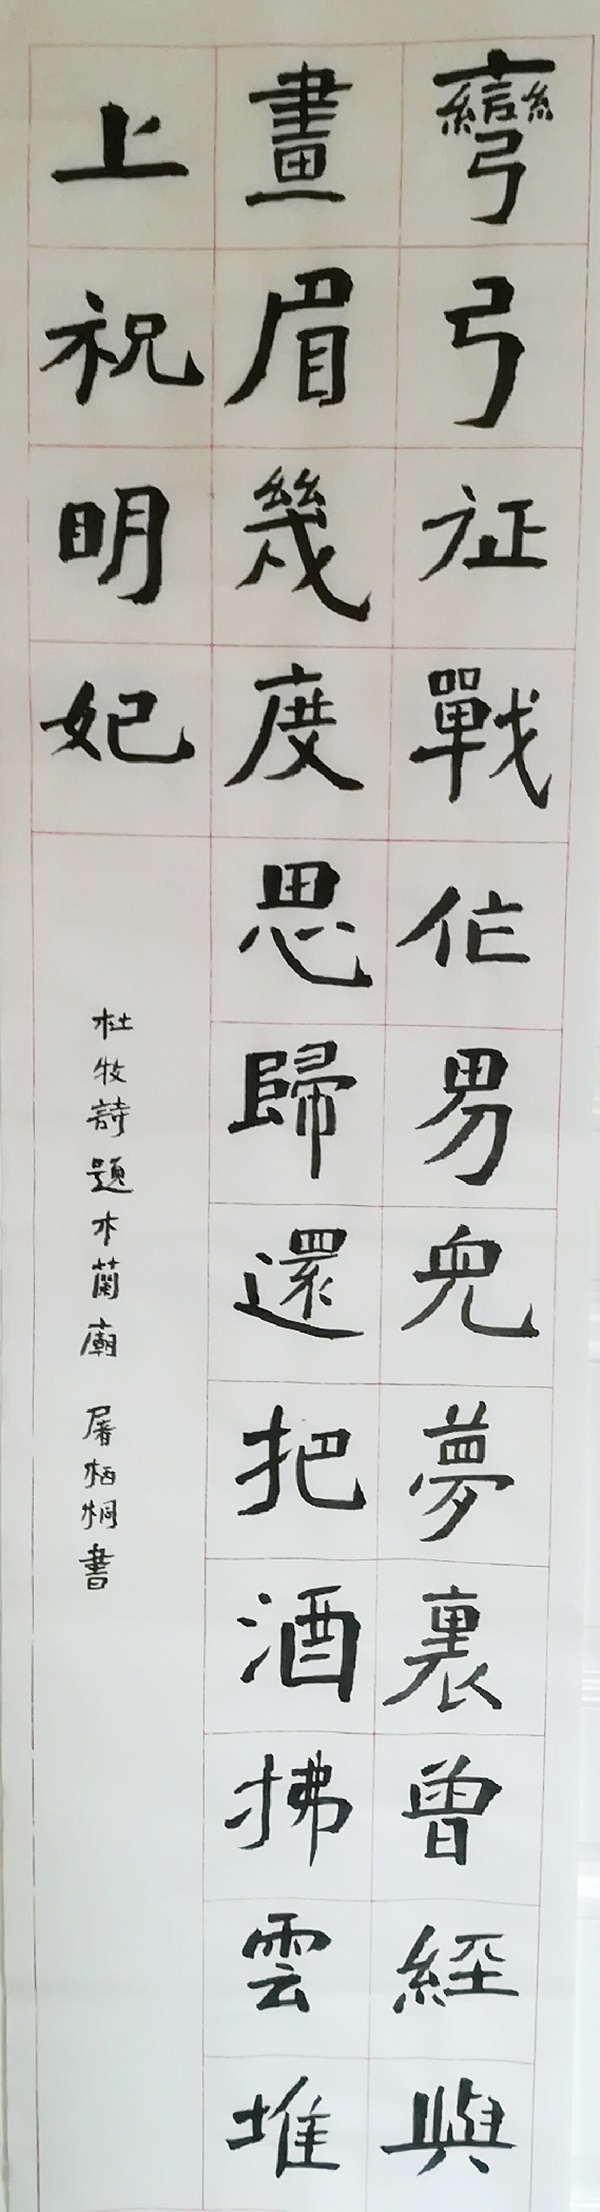 彎弓征戰作男兒夢裏曾經與
畫眉幾度思歸還把酒拂雲堆
上祝明妃
杜牧詩題木蘭廟 屠栖桐書